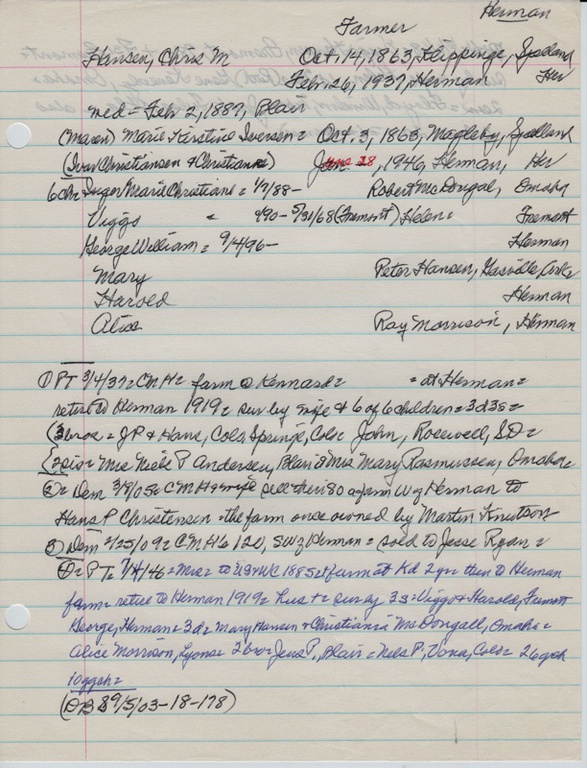 Herman
Farmer
Hansen, Chris M Oct, 14, 1863, Flippinge, Sjælland
Feb. 26, 1937, Herman Her
med – Feb 2, 1887, Blair
(Maren) Marie Kirstine Iversen = Oct, 3, 1863, Magleby, Sjælland
(Ivar Christiansen & Christiane) June 28, 1946, Herman, Her
6ch= Inger Marie Christiane = 1/7/88– Robert McDougal, Omaha
Viggo = 990 – 5/31/68 (Fremont) Helen = Fremont
George William = 9/4/96– Herman
Mary Peter Hansen, Gasville, Ark,
Harold Herman
Alice Ray Morrison, Herman
① PT 3/4/37= CMH= farm @ Kennard= = at Herman=
retire to Herman 1919= sur by wife & 6 of 6 children = 3d 3s =
(3 bros = JP & Hans, Colo Springs, Colo= John, Rosewell, SD=
2 sis= Mrs Niels P Andersen, Blair & Mrs Mary Rasmussen, Omaha=
②= Dem 3/9/05= CMH & wife sell their 80 a farm W of Herman to
Hans P Christensen = the farm once owned by Martin Knutson
③ Dem 2/25/09= CMH's 120, SW of Herman = sold to Jesse Ryan=
④= PT= 7/4/46= Mrs= to US & WC 1885= farm at Kd 2 yr= then to Herman
farm= retire to Herman 1919= hus + = sur by 3s= Viggo & Harold, Fremont
George, Herman= 3d= Mary Hansen & Christiania McDongall, Omaha=
Alice Morrison, Lyons= 2 bro= Jens P, Blair= Nels P, Vona, Colo= 26 gch
10 ggch=
(DB 89/5/03-18-178)